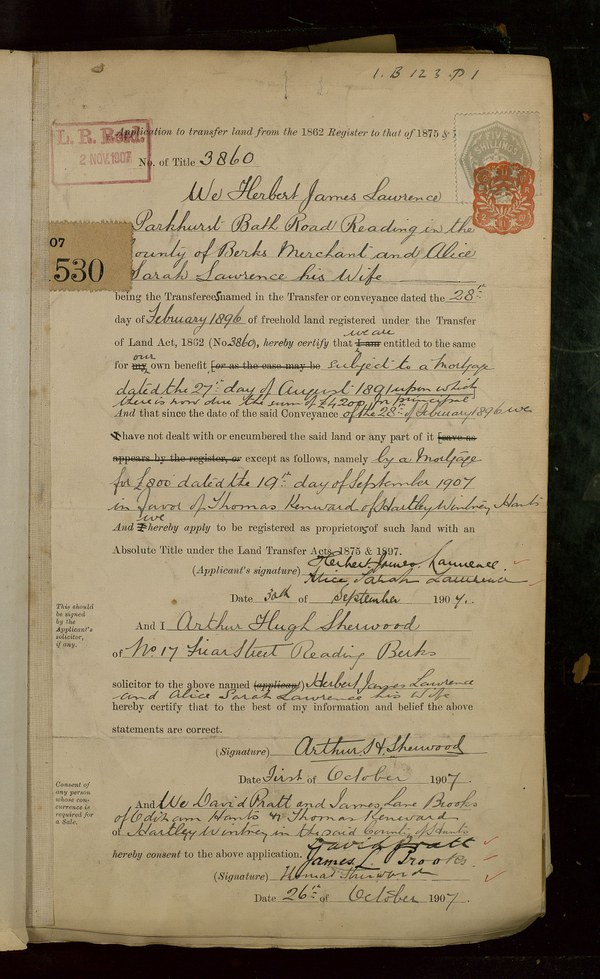 1. B 123. P 1
Application to transfer land from the 1862 Register to that of 1875 &
L. R. Recd.
2 NOV. 1907
FIVE SHILLINGS
No. of Title 3860
We Herbert James Lawrence
Parkhurst Bath Road Reading in the
ounty of Berks Merchant and Alice
07
530
Sarah Lawrence his Wife
being the Transferees named in the Transfer or conveyance dated the 28th
day of February 1896 of freehold land registered under the Transfer
we are
of Land Act, 1862 (No. 3860), hereby certify that I am entitled to the same
our
for my own benefit [or as the case may be subject to a mortgage
dated the 27th day of August 1891 upon which
there is now due the sum of £4200 for principal
And that since the date of the said Conveyance of the 28th of February 1896 we
I have not dealt with or encumbered the said land or any part of it [save as
appears by the register, or except as follows, namely by a Mortgage
for £800 dated the 19th day of September 1907
in favor of Thomas Kenward of Hartley Wintney Hants
we
And I hereby apply to be registered as proprietors of such land with an
Absolute Title under the Land Transfer Acts, 1875 & 1897.
(Applicant's signature) Herbert James Lawrence
Alice Sarah Lawrence
Date 30th of September 1907.
This should
be signed
by the
Applicant's
solicitor,
if any.
And I Arthur Hugh Sherwood
of No 17 Friar Street Reading Berks
solicitor to the above named (applicant) Herbert James Lawrence
and Alice Sarah Lawrence his Wife
hereby certify that to the best of my information and belief the above
statements are correct.
(Signature) Arthur H. Sherwood
Date First of October 1907.
Consent of
any person
whose con-
currence is
required for
a Sale.
And We David Pratt and James Lane Brooks
of Odiham Hants & Thomas Kenward
of Hartley Wintney in the said County of Hants
hereby consent to the above application. David Pratt
James L. Brooks
(Signature) Thomas
Date 26th of October 1907.